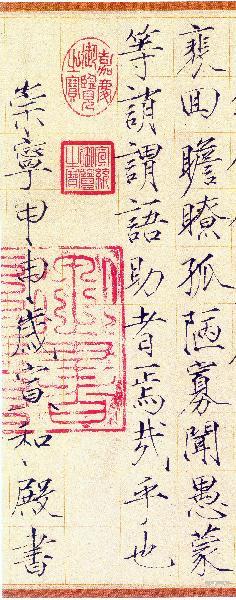 裵回瞻眺孤陋寡聞愚蒙
等誚謂語助者焉哉乎也
崇寧甲申歲宣和殿書
嘉慶御覽之寶
宣統御覽之寶